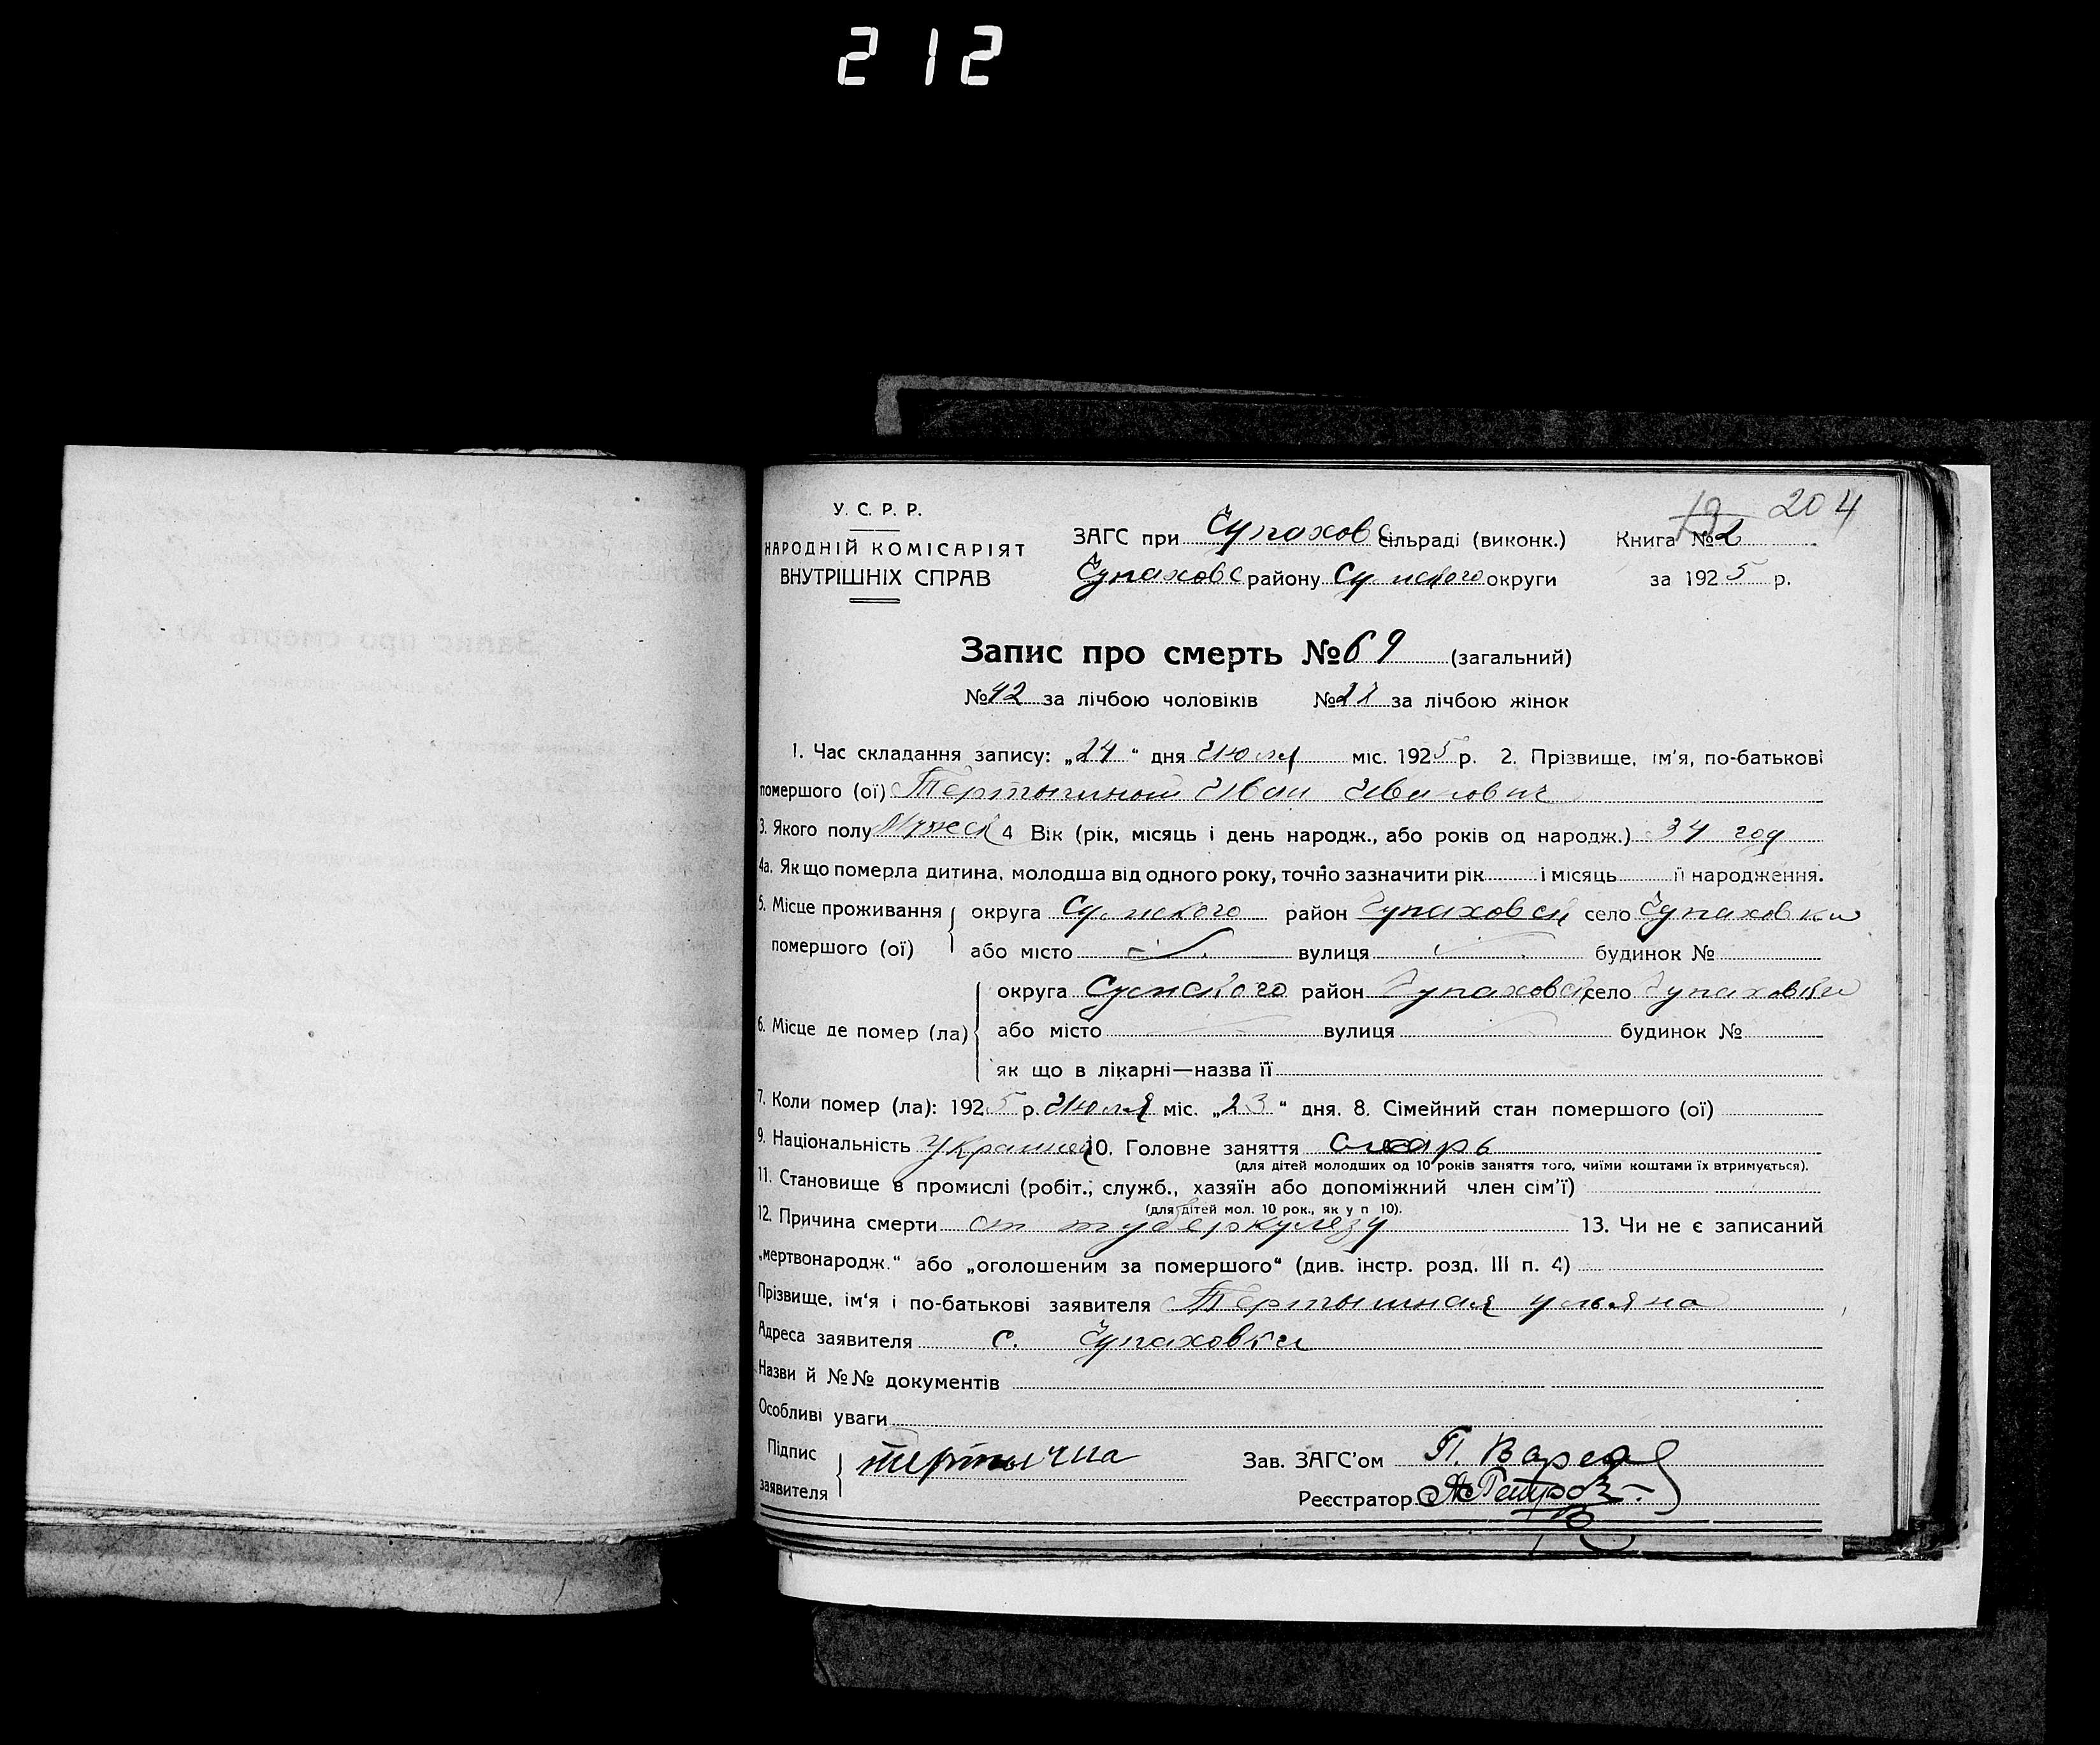 212
204
У. С. Р. Р.
НАРОДНІЙ КОМІСАРІЯТ
ВНУТРІШНІХ СПРАВ
ЗАГС при Чупахов Сільраді (виконк.) Книга № 2
Чупаховс району Сумского округи за 1925 р.
Запис про смерть № 69 (загальний)
№ 42 за лічбою чоловіків № 27 за лічбою жінок
1. Час складання запису: „24“ дня Июля міс. 1925 р. 2. Прізвище, ім'я, по-батькові
помершого (ої) Тертышной Иван Иванович
3. Якого полу Мужск 4 Вік (рік, місяць і день народж., або років од народж.) 34 год
4а. Як що померла дитина, молодша від одного року, точно зазначити рік і місяць її народження.
5. Місце проживання помершого (ої) округа Сумского район Чупаховск село Чупаховки
або місто вулиця будинок №
6. Місце де помер (ла) округа Сумского район Чупаховск село Чупаховки
або місто вулиця будинок №
як що в лікарні—назва її
7. Коли помер (ла): 1925 р. Июля міс. „23“ дня. 8. Сімейний стан помершого (ої)
9. Національність Украинец 10. Головне заняття
(для дітей молодших од 10 років заняття того, чиїми коштами їх втримується).
11. Становище в промислі (робіт., служб., хазяїн або допоміжний член сім'ї)
(для дітей мол. 10 рок., як у п 10).
12. Причина смерти от туберкулезу 13. Чи не є записаний
„мертвонародж.“ або „оголошеним за помершого“ (див. інстр. розд. III п. 4)
Прізвище, ім'я і по-батькові заявителя Тертышная Ульяна
Адреса заявителя с. Чупаховки
Назви й №№ документів
Особливі уваги
Підпис заявителя тертична Зав. ЗАГС'ом П.
Реєстратор